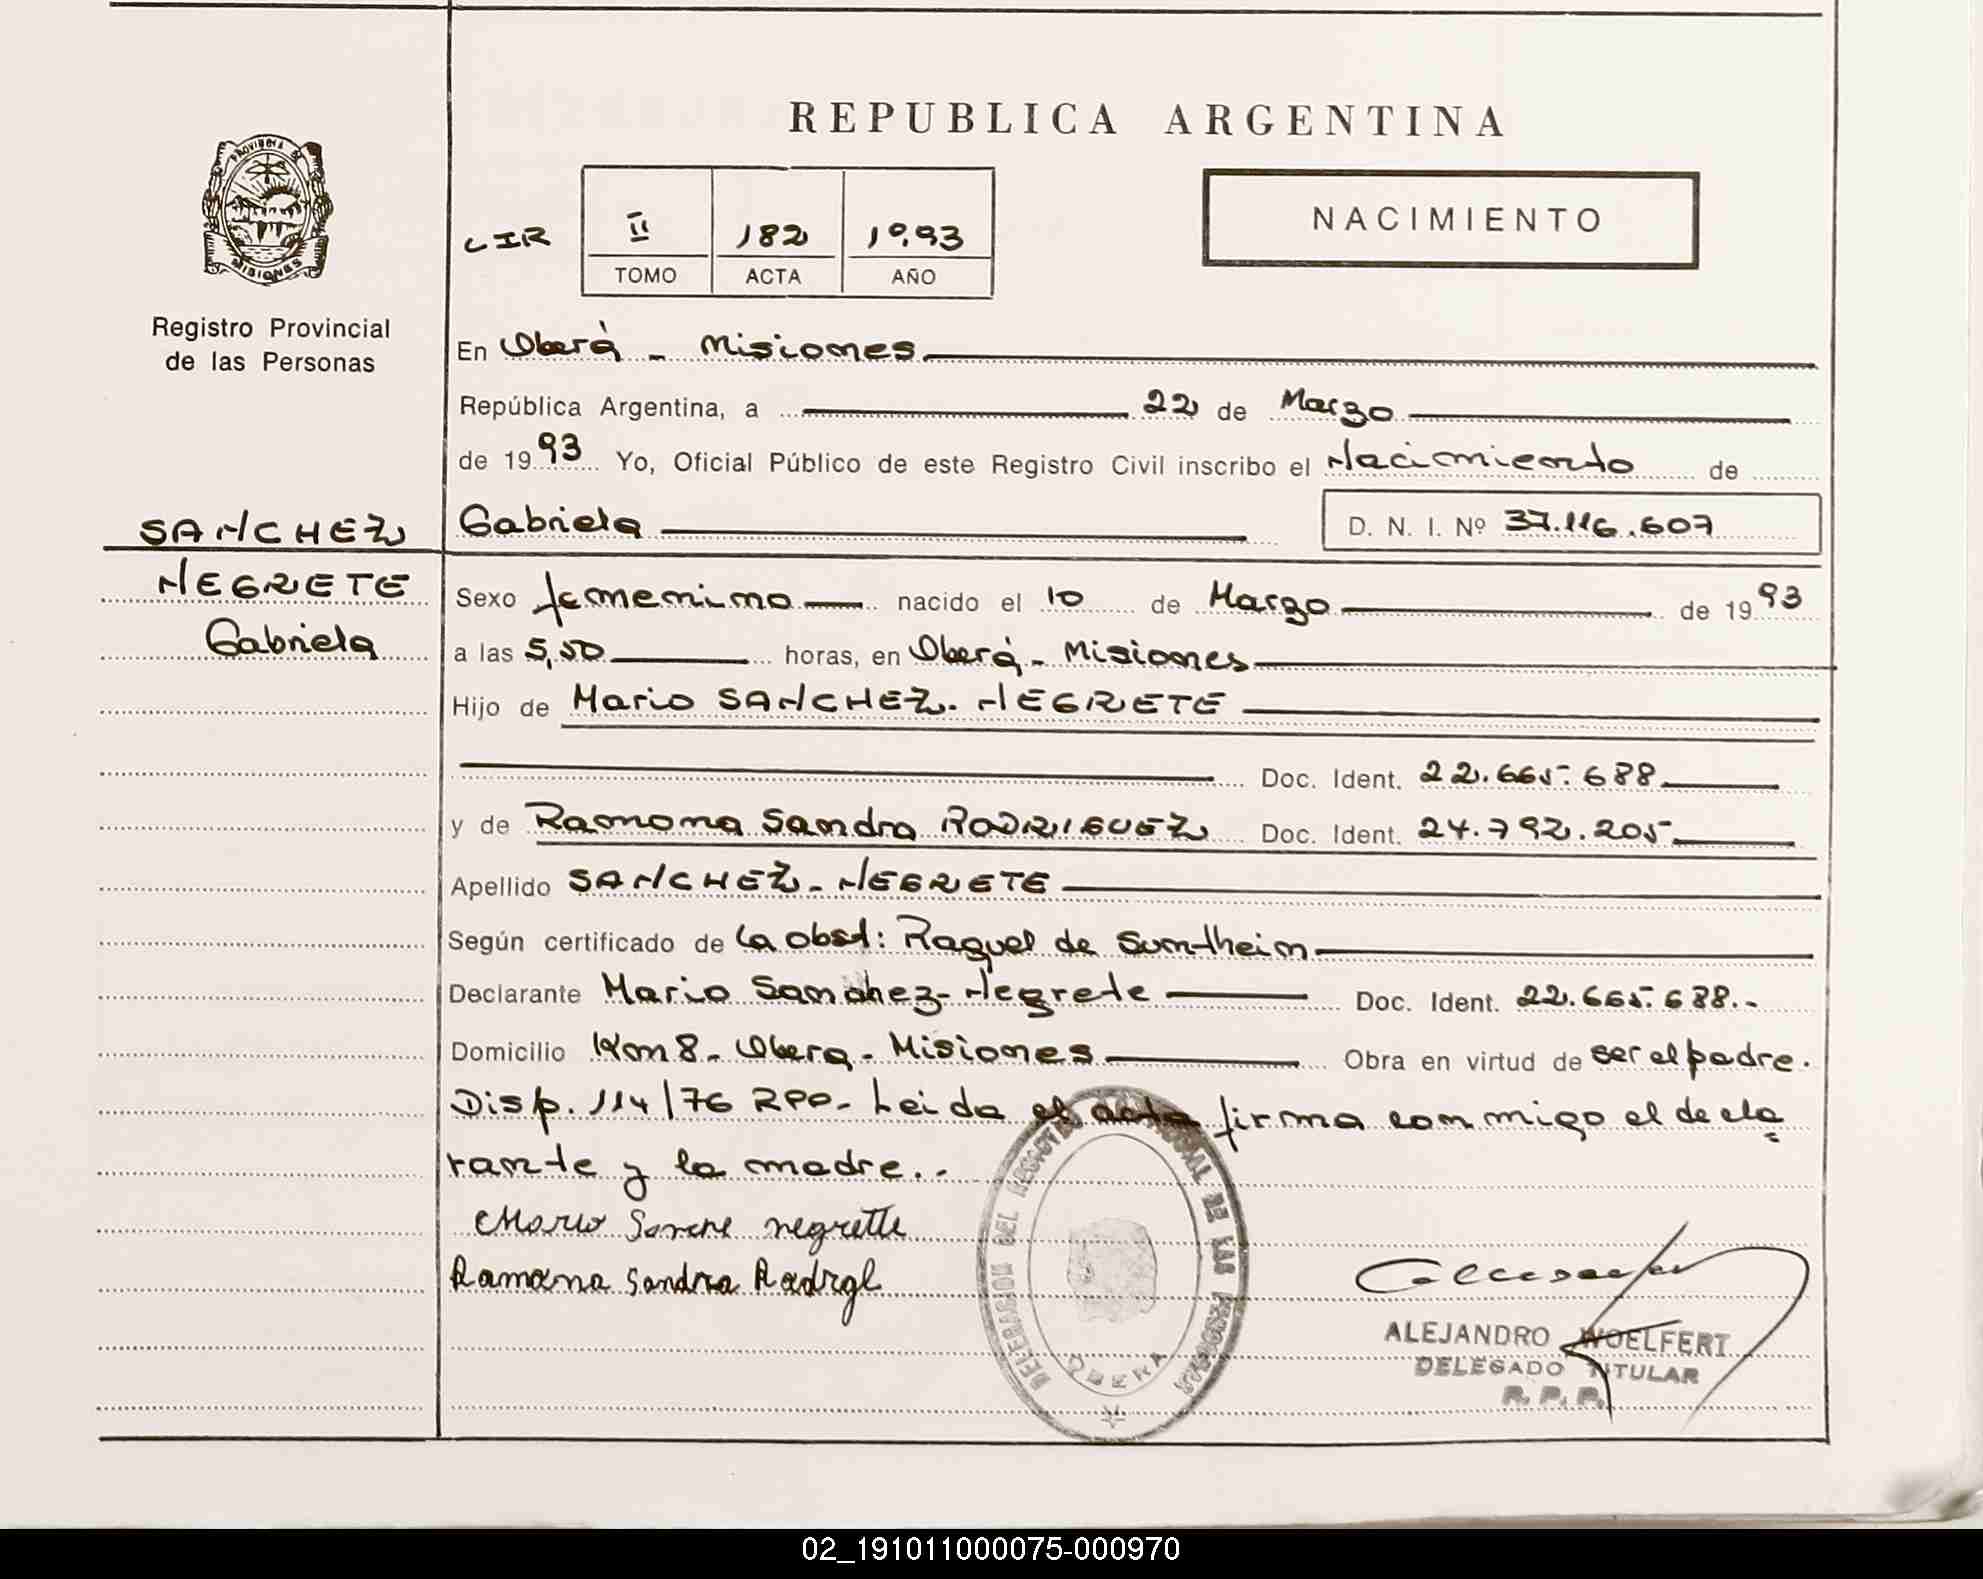 REPUBLICA ARGENTINA
PROVINCIA DE
MISIONES
Registro Provincial
de las Personas
CIR II 182 1993
TOMO ACTA AÑO
NACIMIENTO
En Oberá - Misiones
República Argentina, a 22 de Marzo
de 1993 Yo, Oficial Público de este Registro Civil inscribo el Nacimiento de
SANCHEZ Gabriela D. N. I. Nº 37.116.607
NEGRETE Sexo femenino nacido el 10 de Marzo de 1993
Gabriela a las 5,50 horas, en Oberá - Misiones
Hijo de Mario SANCHEZ - NEGRETE
Doc. Ident. 22.665.688
y de Ramona Sandra RODRIGUEZ Doc. Ident. 24.792.205
Apellido SANCHEZ - NEGRETE
Según certificado de la obst: Raquel de Suntheim
Declarante Mario Sanchez - Negrete Doc. Ident. 22.665.688.-
Domicilio Km 8 - Obera - Misiones Obra en virtud de ser el padre.
Disp. 114/76 RPP - Leida el acta firma conmigo el decla=
rante y la madre.-
Mario Sanche negrette
Ramona Sandra
DELEGACION DEL REGISTRO PROVINCIAL DE LAS PERSONAS
OBERA
ALEJANDRO WOELFERT
DELEGADO TITULAR
R. P. P.
02_191011000075-000970